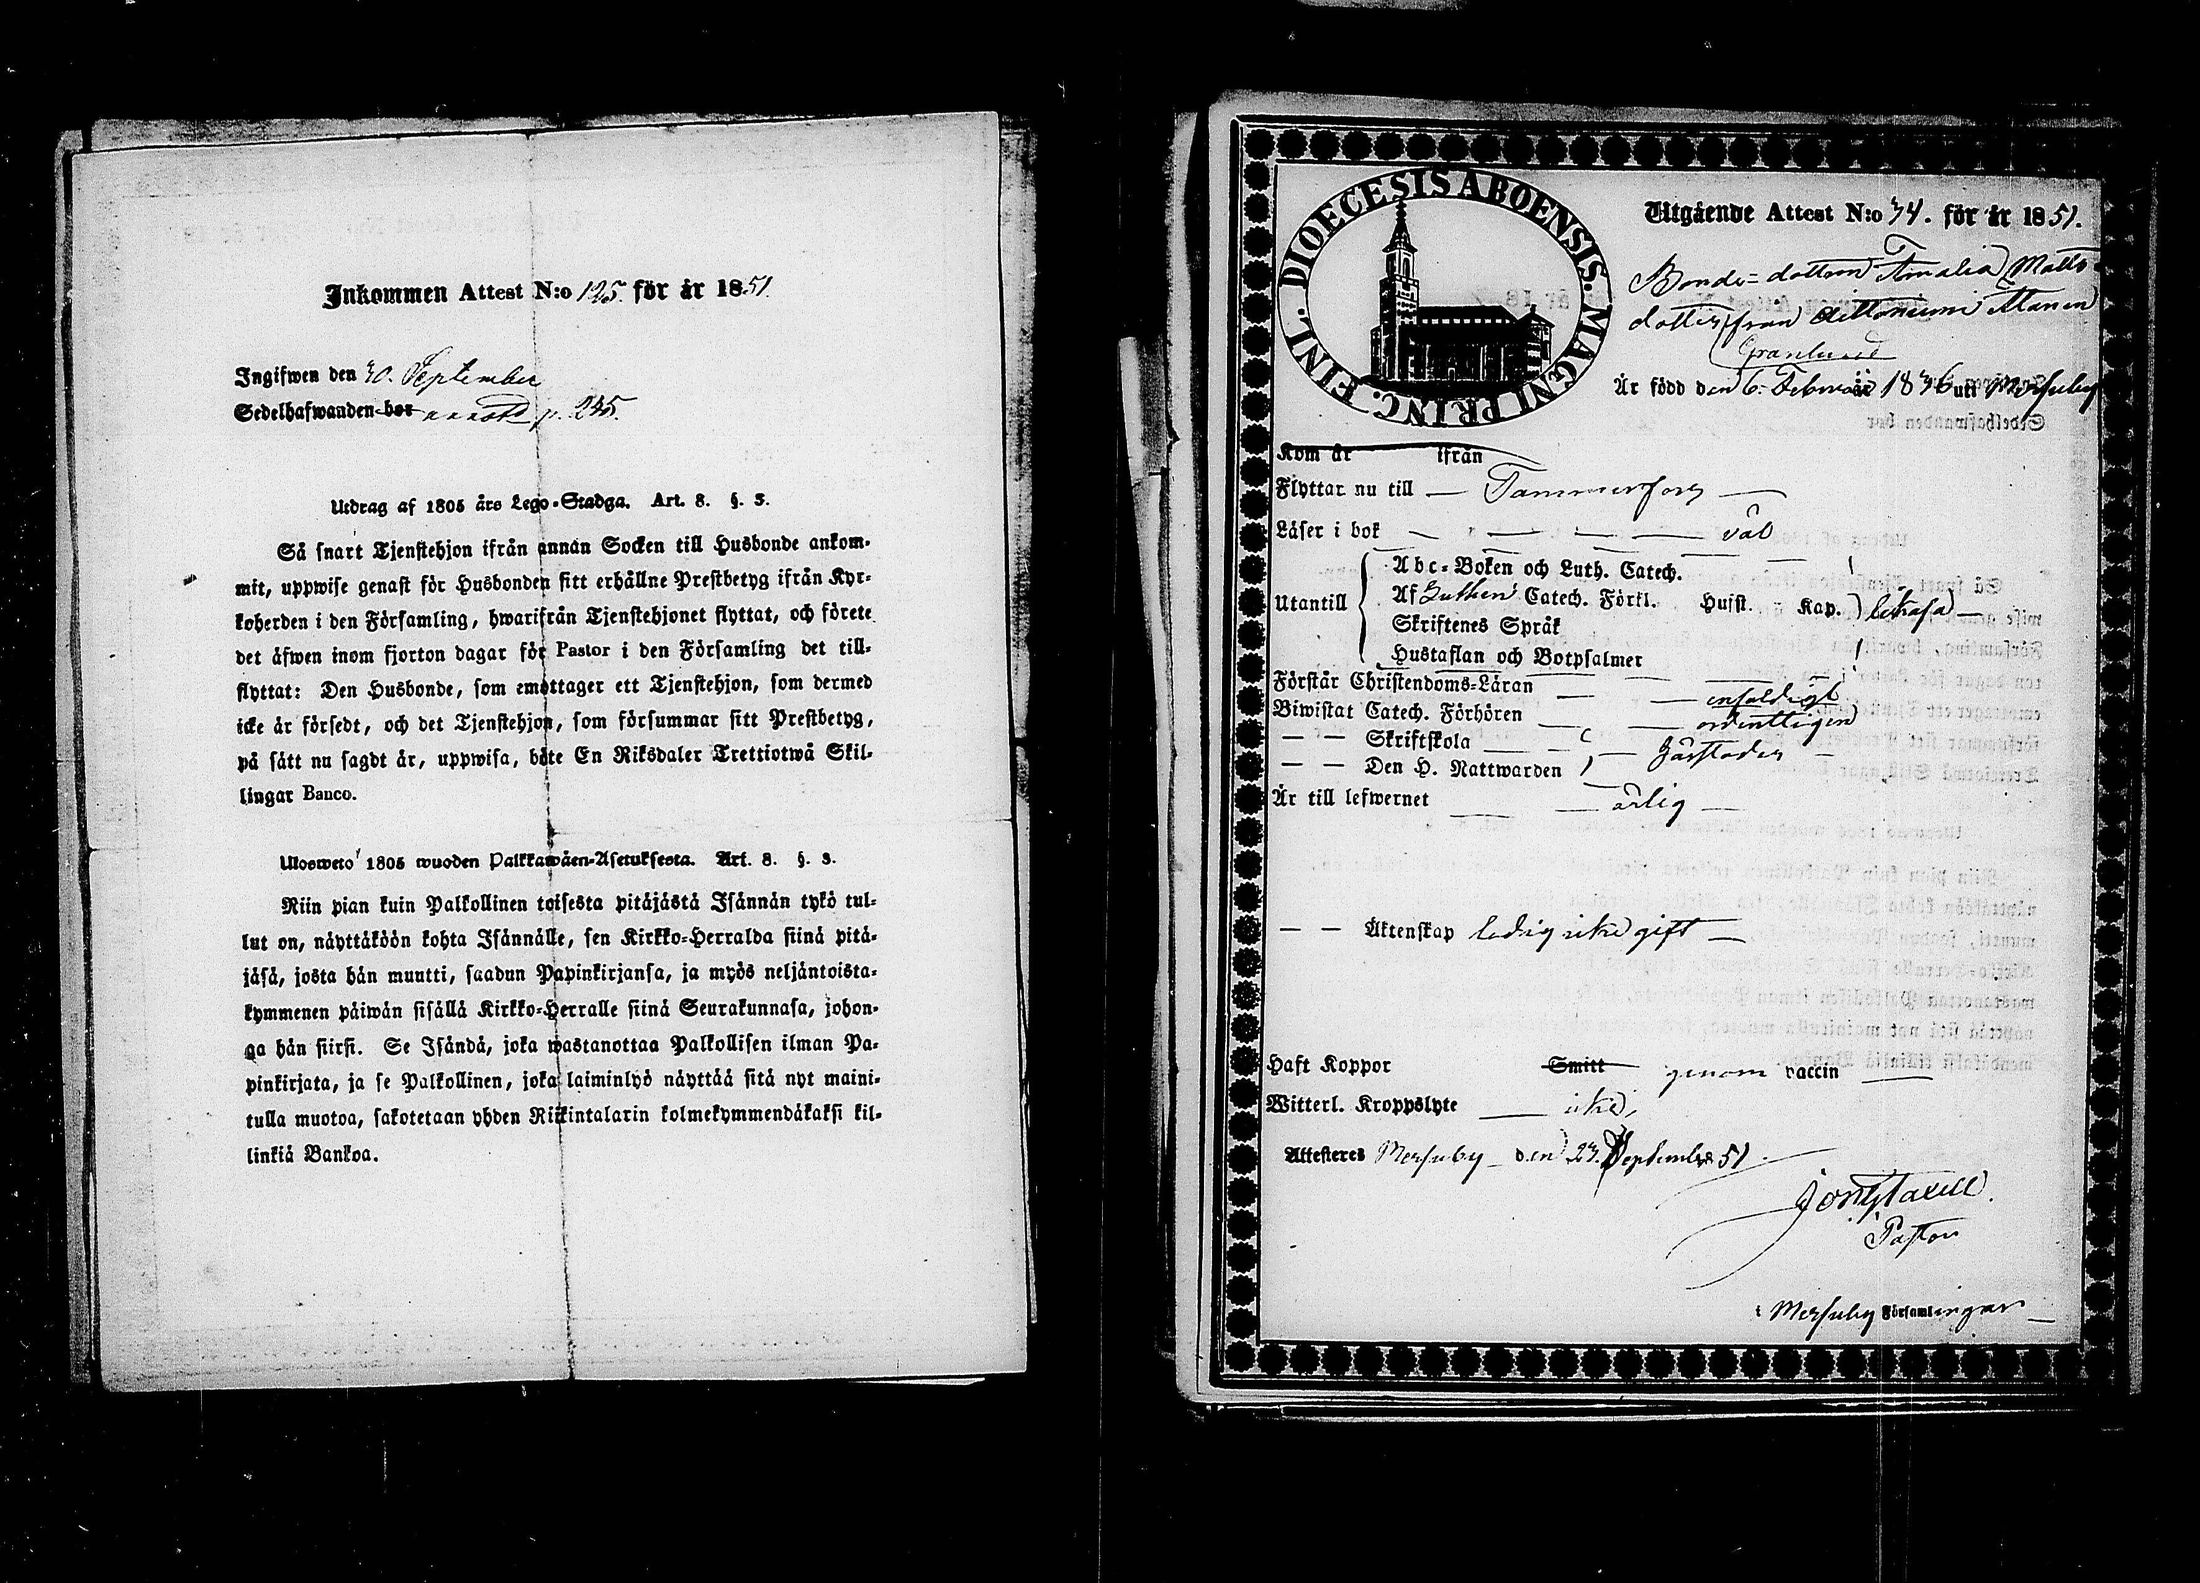 Inkommen Attest N:o 125. för år 1851.
Ingifwen den 30. September
Sedelhafwanden bor annotd p. 245.
Utdrag af 1805 års Lego-Stadga. Art. 8. §. 3.
Så snart Tjenstehjon ifrån annan Socken till Husbonde ankom-
mit, uppwise genast för Husbonden sitt erhållne Prestbetyg ifrån Kyr-
koherden i den Församling, hwarifrån Tjenstehjonet flyttat, och förete
det äfwen inom fjorton dagar för Pastor i den Församling det till-
flyttat: Den Husbonde, som emottager ett Tjenstehjon, som dermed
icke är försedt, och det Tjenstehjon, som försummar sitt Prestbetyg,
på sätt nu sagdt är, uppwisa, böte En Riksdaler Trettiotwå Skil-
lingar Banco.
Ulosweto 1805 wuoden Palkkawäen-Asetuksesta. Art. 8. §. 3.
Niin pian kuin Palkollinen toisesta pitäjästä Isännän tykö tul-
lut on, näyttäköön kohta Isännälle, sen Kirkko-Herralda siinä pitä-
jäsä, josta hän muutti, saadun Papinkirjansa, ja myös neljäntoista-
kymmenen päiwän sisällä Kirkko-Herralle siinä Seurakunnasa, johon-
ga hän siirsi. Se Isändä, joka wastanottaa Palkollisen ilman Pa-
pinkirjata, ja se Palkollinen, joka laiminlyö näyttää sitä nyt maini-
tulla muotoa, sakotetaan yhden Riikintalarin kolmekymmendäkaksi kil-
linkiä Bankoa.
DIOECESIS ABOENSIS. MAGNI PRINC. FINL.
Utgående Attest N:o 34. för år 1851.
Bonde-dottern Amalia Matts
dotter från Stanen
Granlund
Är född den 6. Februari 1836 uti Mersuby
Kom år ifrån
Flyttar nu till — Tammerfors —
Läser i bok — — — — väl
Abc-Boken och Luth. Catech.
Utantill Af Catech. Förkl. Hufst. Kap.
Skriftenes Språk
Hustaflan och Botpsalmer
Förstår Christendoms-Läran — — enfaldigt
Biwistat Catech. Förhören — — ordentligen
— — Skriftskola
— — Den H. Nattwarden
Är till lefwernet — — ärlig —
— — Äktenskap ledig icke gift —
Haft Koppor Smitt genom vaccin —
Witterl. Kroppslyte — icke,
Attesteres Mersuby den 23. September 51.
Pastor
i Mersuby Församlingar —